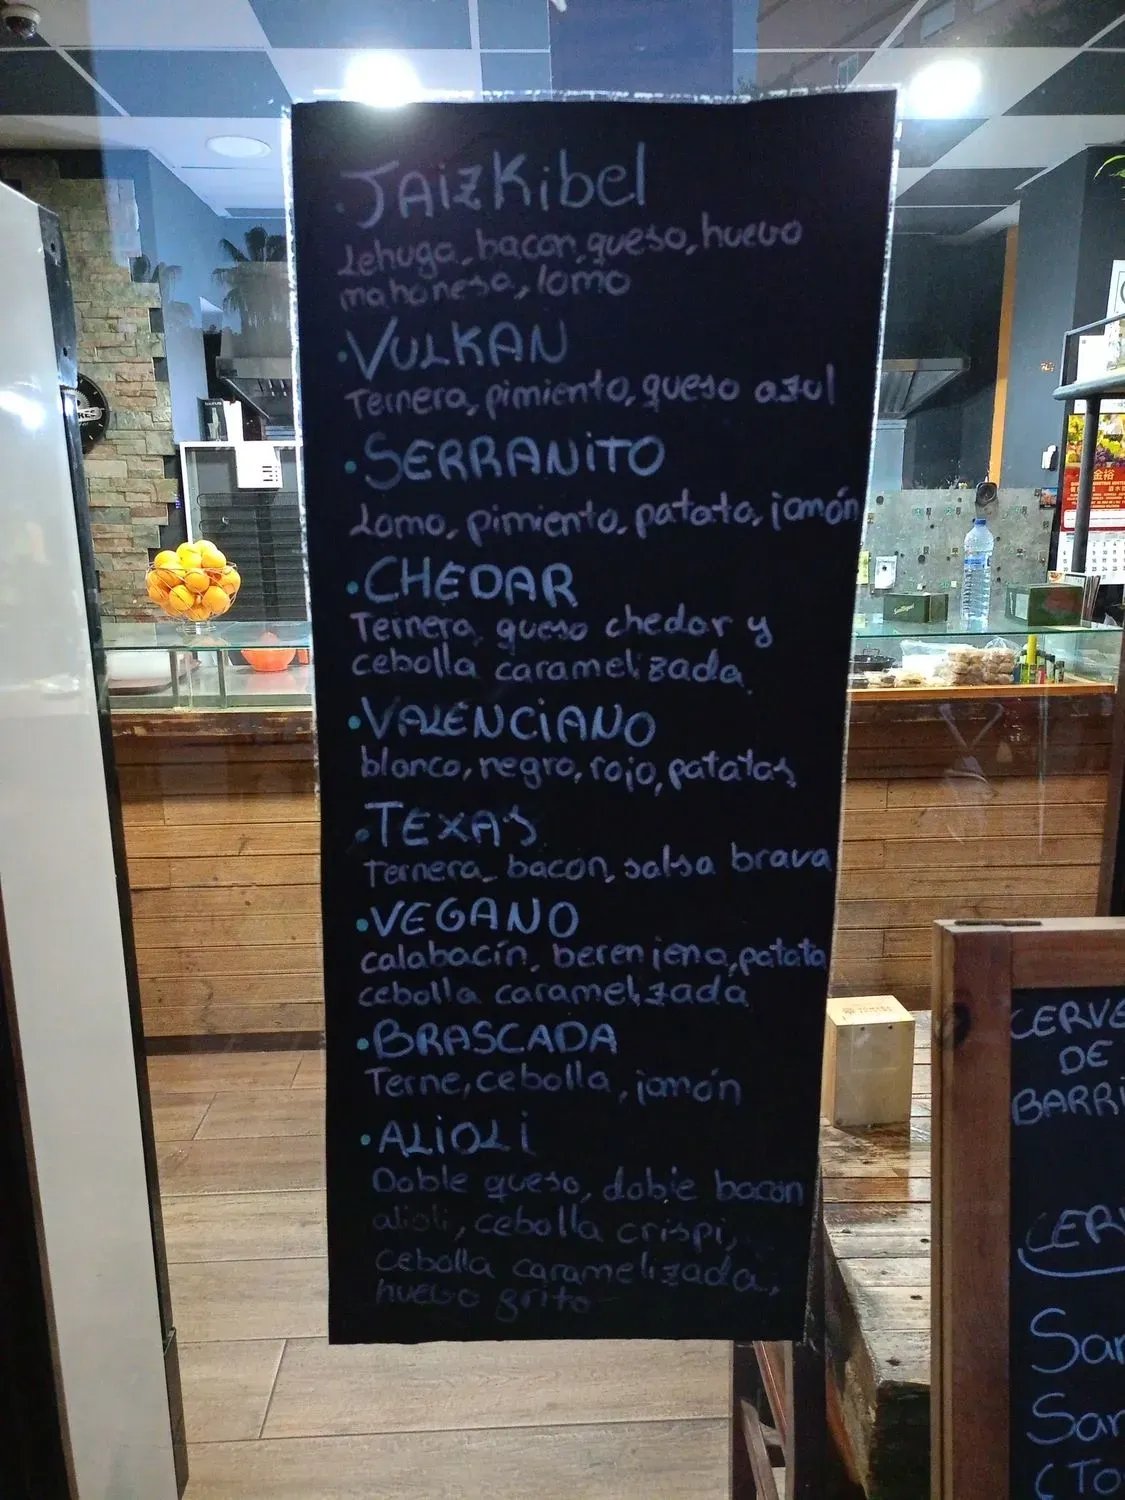 JAIZKIBEL
Lehuga, bacon, queso, huevo
mahonesa, lomo
·VULKAN
Ternera, pimiento, queso azul
·SERRANITO
Lomo, pimiento, patata, jamón
·CHEDAR
Ternera, queso chedar y
cebolla caramelizada
·VALENCIANO
blanco, negro, rojo, patatas
·TEXAS
Ternera, bacon, salsa brava
·VEGANO
calabacín, berenjena, patata
cebolla caramelizada
·BRASCADA
Terne, cebolla, jamón
·ALIOLI
Doble queso, doble bacon
alioli, cebolla crispi,
cebolla caramelizada,
huevo grito
CERVE
DE
BARRI
CERV
San
San
(To